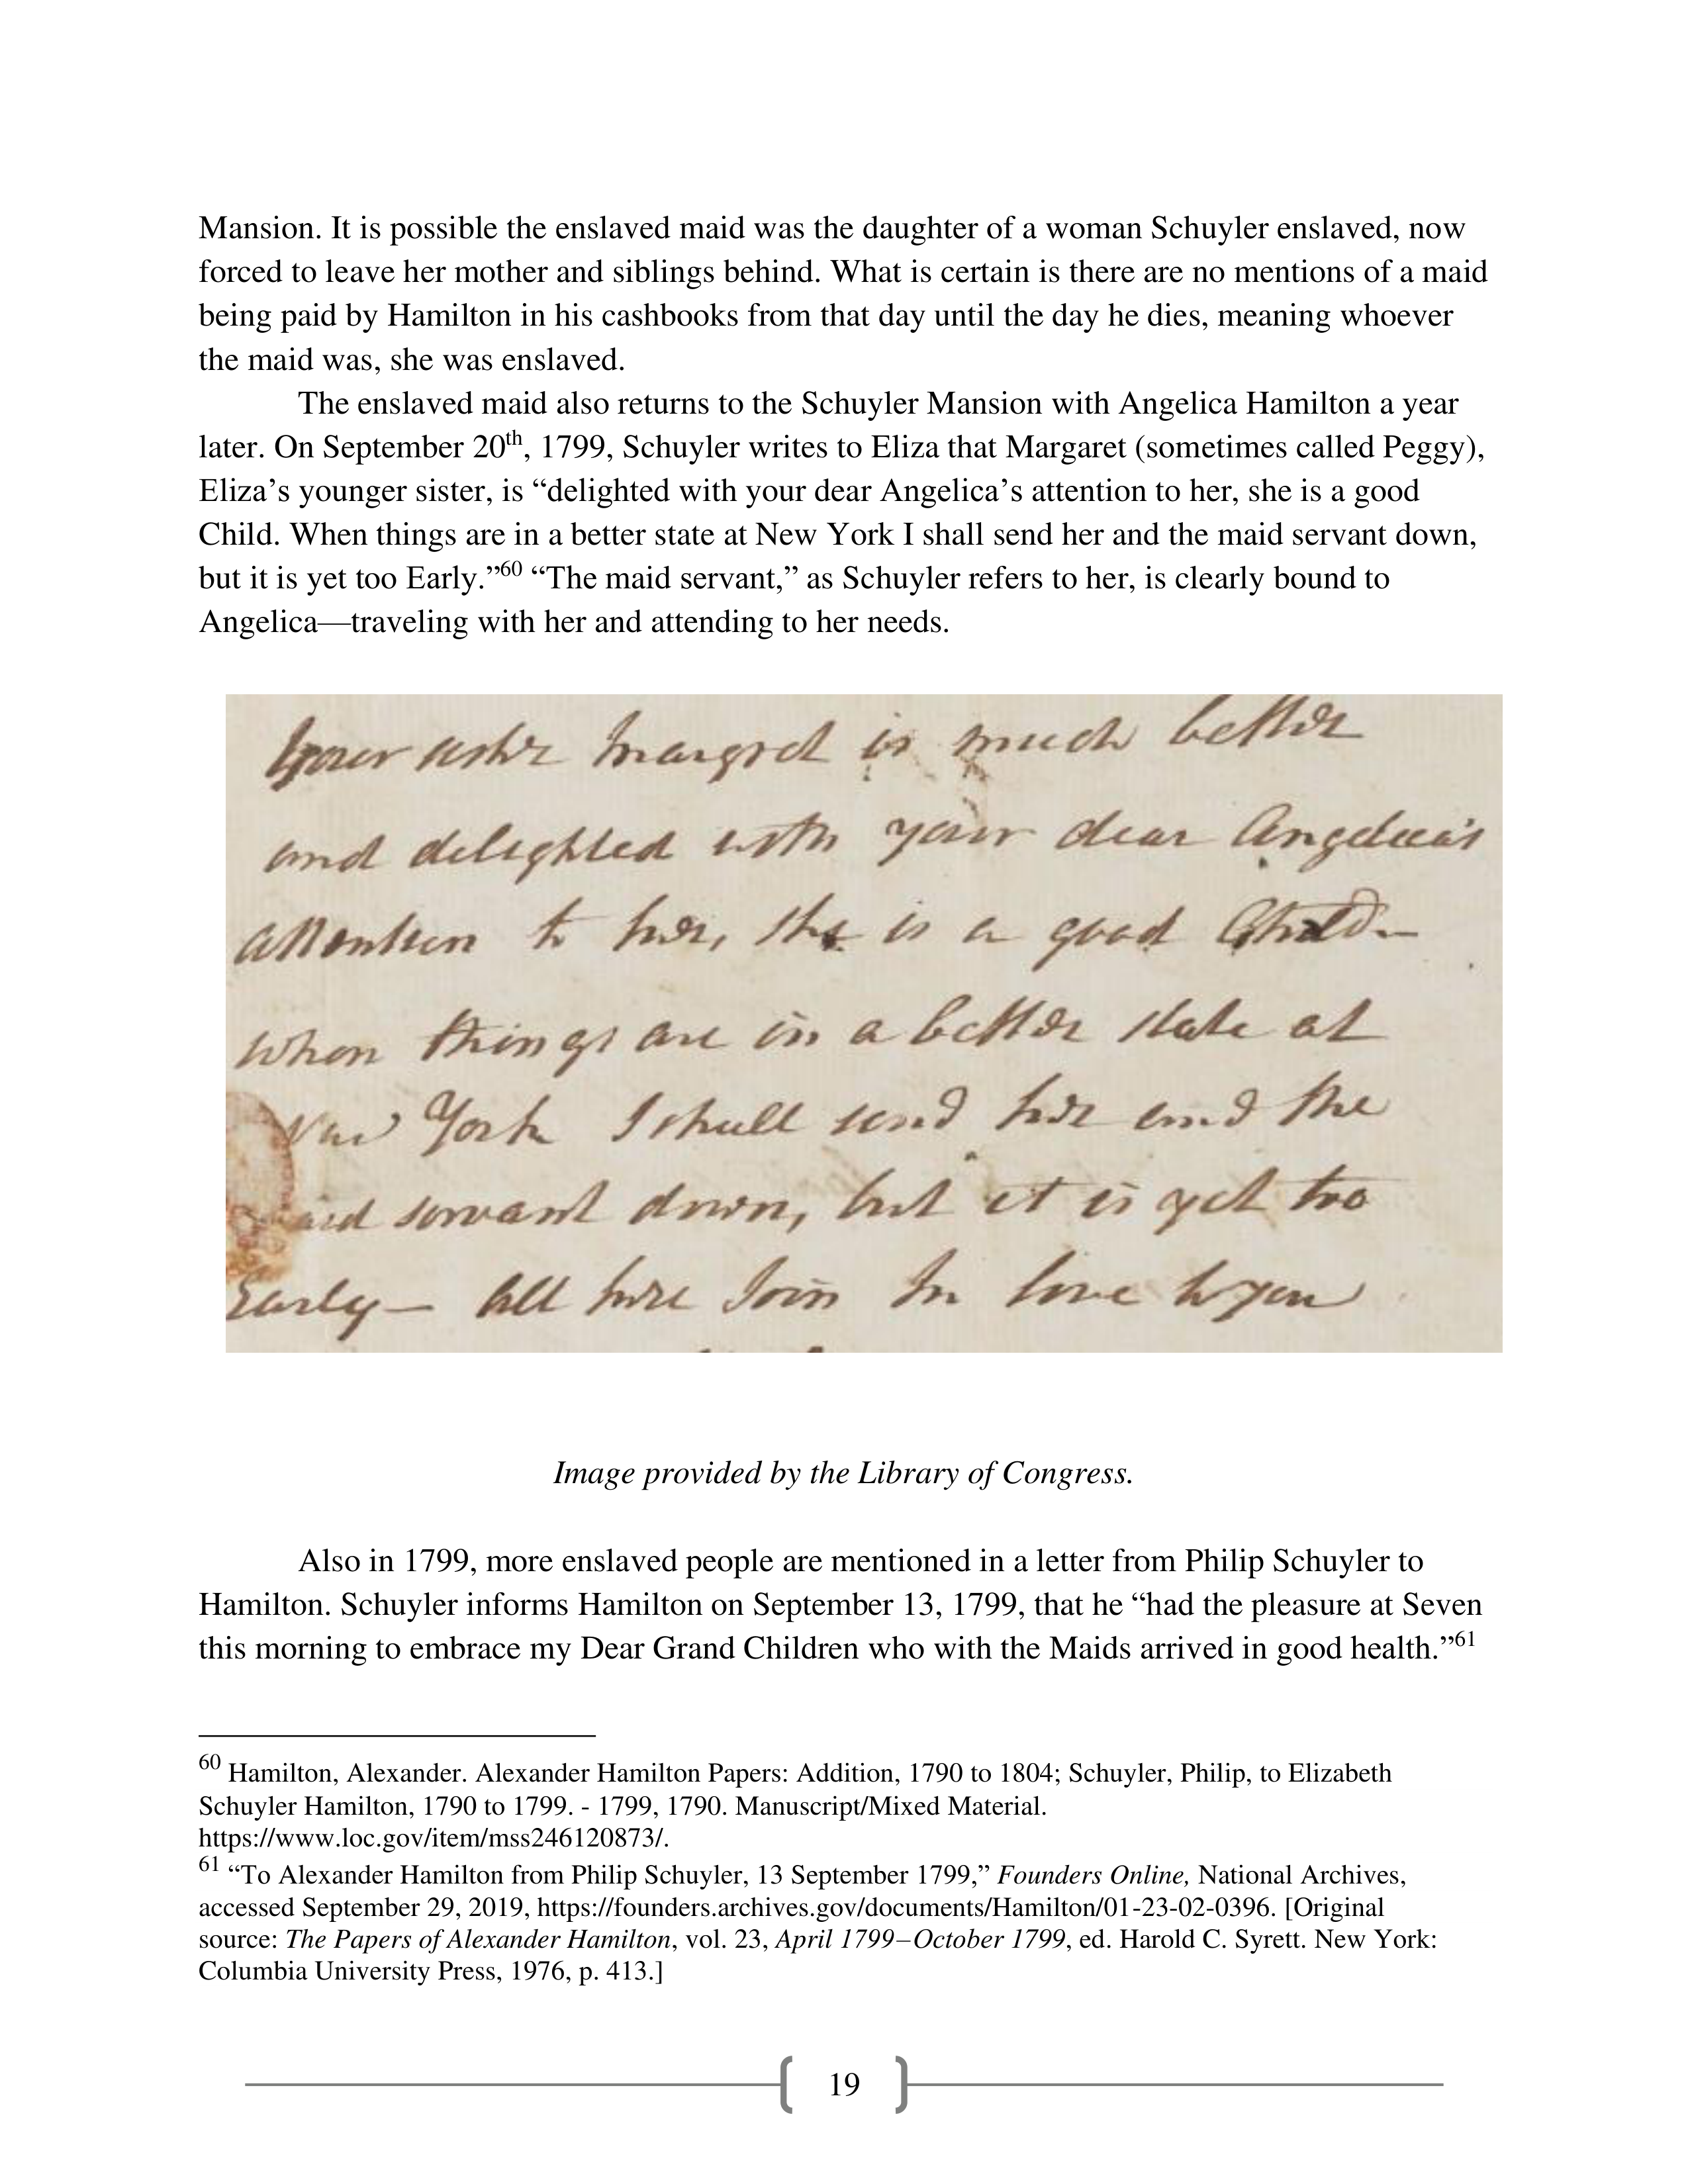 Mansion. It is possible the enslaved maid was the daughter of a woman Schuyler enslaved, now
forced to leave her mother and siblings behind. What is certain is there are no mentions of a maid
being paid by Hamilton in his cashbooks from that day until the day he dies, meaning whoever
the maid was, she was enslaved.
The enslaved maid also returns to the Schuyler Mansion with Angelica Hamilton a year
later. On September 20th, 1799, Schuyler writes to Eliza that Margaret (sometimes called Peggy),
Eliza’s younger sister, is “delighted with your dear Angelica’s attention to her, she is a good
Child. When things are in a better state at New York I shall send her and the maid servant down,
but it is yet too Early.”60 “The maid servant,” as Schuyler refers to her, is clearly bound to
Angelica—traveling with her and attending to her needs.
Your sister Margret is much better
and delighted with your dear Angelica's
attention to her, she is a good Child—
when things are in a better state at
New York I shall send her and the
maid servant down, but it is yet too
Early— all here Join In love to you
Image provided by the Library of Congress.
Also in 1799, more enslaved people are mentioned in a letter from Philip Schuyler to
Hamilton. Schuyler informs Hamilton on September 13, 1799, that he “had the pleasure at Seven
this morning to embrace my Dear Grand Children who with the Maids arrived in good health.”61
60 Hamilton, Alexander. Alexander Hamilton Papers: Addition, 1790 to 1804; Schuyler, Philip, to Elizabeth
Schuyler Hamilton, 1790 to 1799. - 1799, 1790. Manuscript/Mixed Material.
https://www.loc.gov/item/mss246120873/.
61 “To Alexander Hamilton from Philip Schuyler, 13 September 1799,” Founders Online, National Archives,
accessed September 29, 2019, https://founders.archives.gov/documents/Hamilton/01-23-02-0396. [Original
source: The Papers of Alexander Hamilton, vol. 23, April 1799–October 1799, ed. Harold C. Syrett. New York:
Columbia University Press, 1976, p. 413.]
19